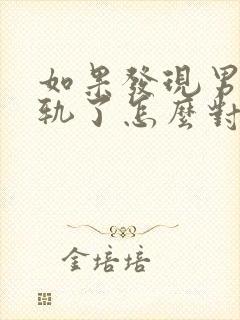 如果發現男
軌了怎麼對
金培培